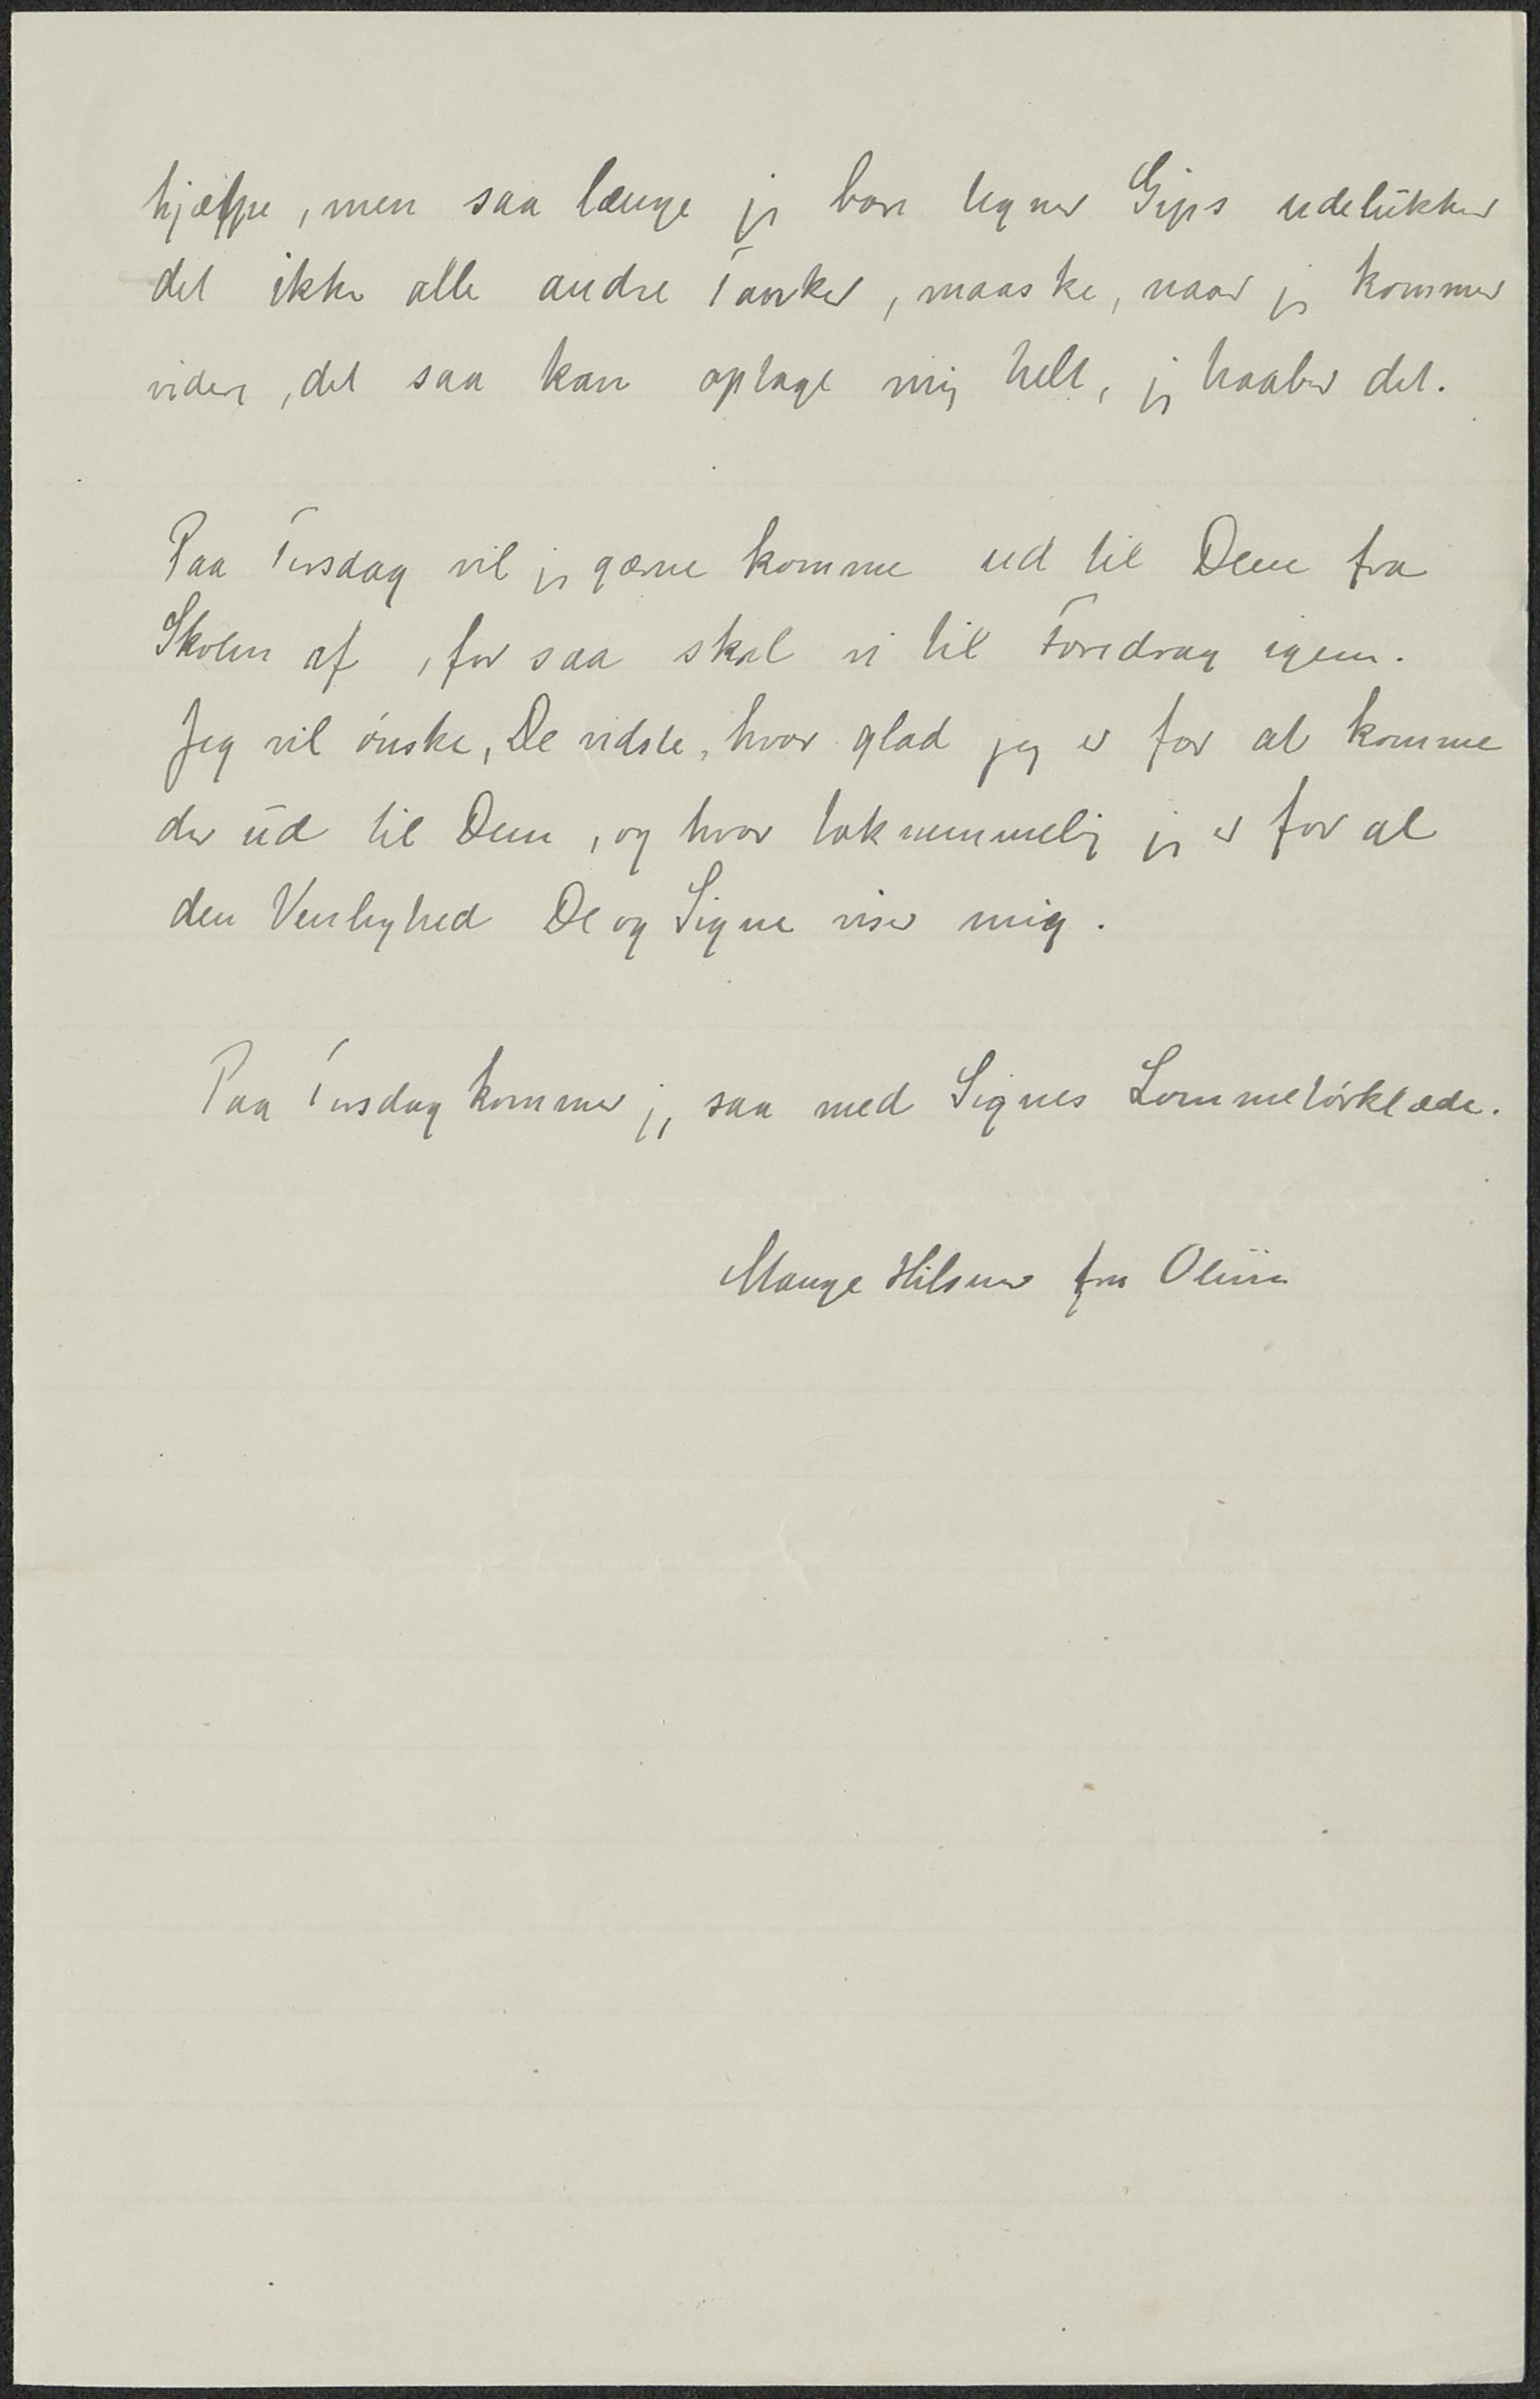 hjælpe, men saa længe jeg bare tegner Gips udelukker
det ikke alle andre Tanker, maaske, naar jeg kommer
videre, det saa kan optage mig helt, jeg haaber det.
Paa Tirsdag vil jeg gærne komme ud til Dem fra
Skolen af, for saa skal vi til Foredrag igen.
Jeg vil ønske, De vidste, hvor glad jeg er for at komme
der ud til Dem, og hvor taknemmelig jeg er for al
den Venlighed De og Signe viser mig.
Paa Tirsdag kommer jeg saa med Signes Lommetørklæde.
Mange Hilsner fra